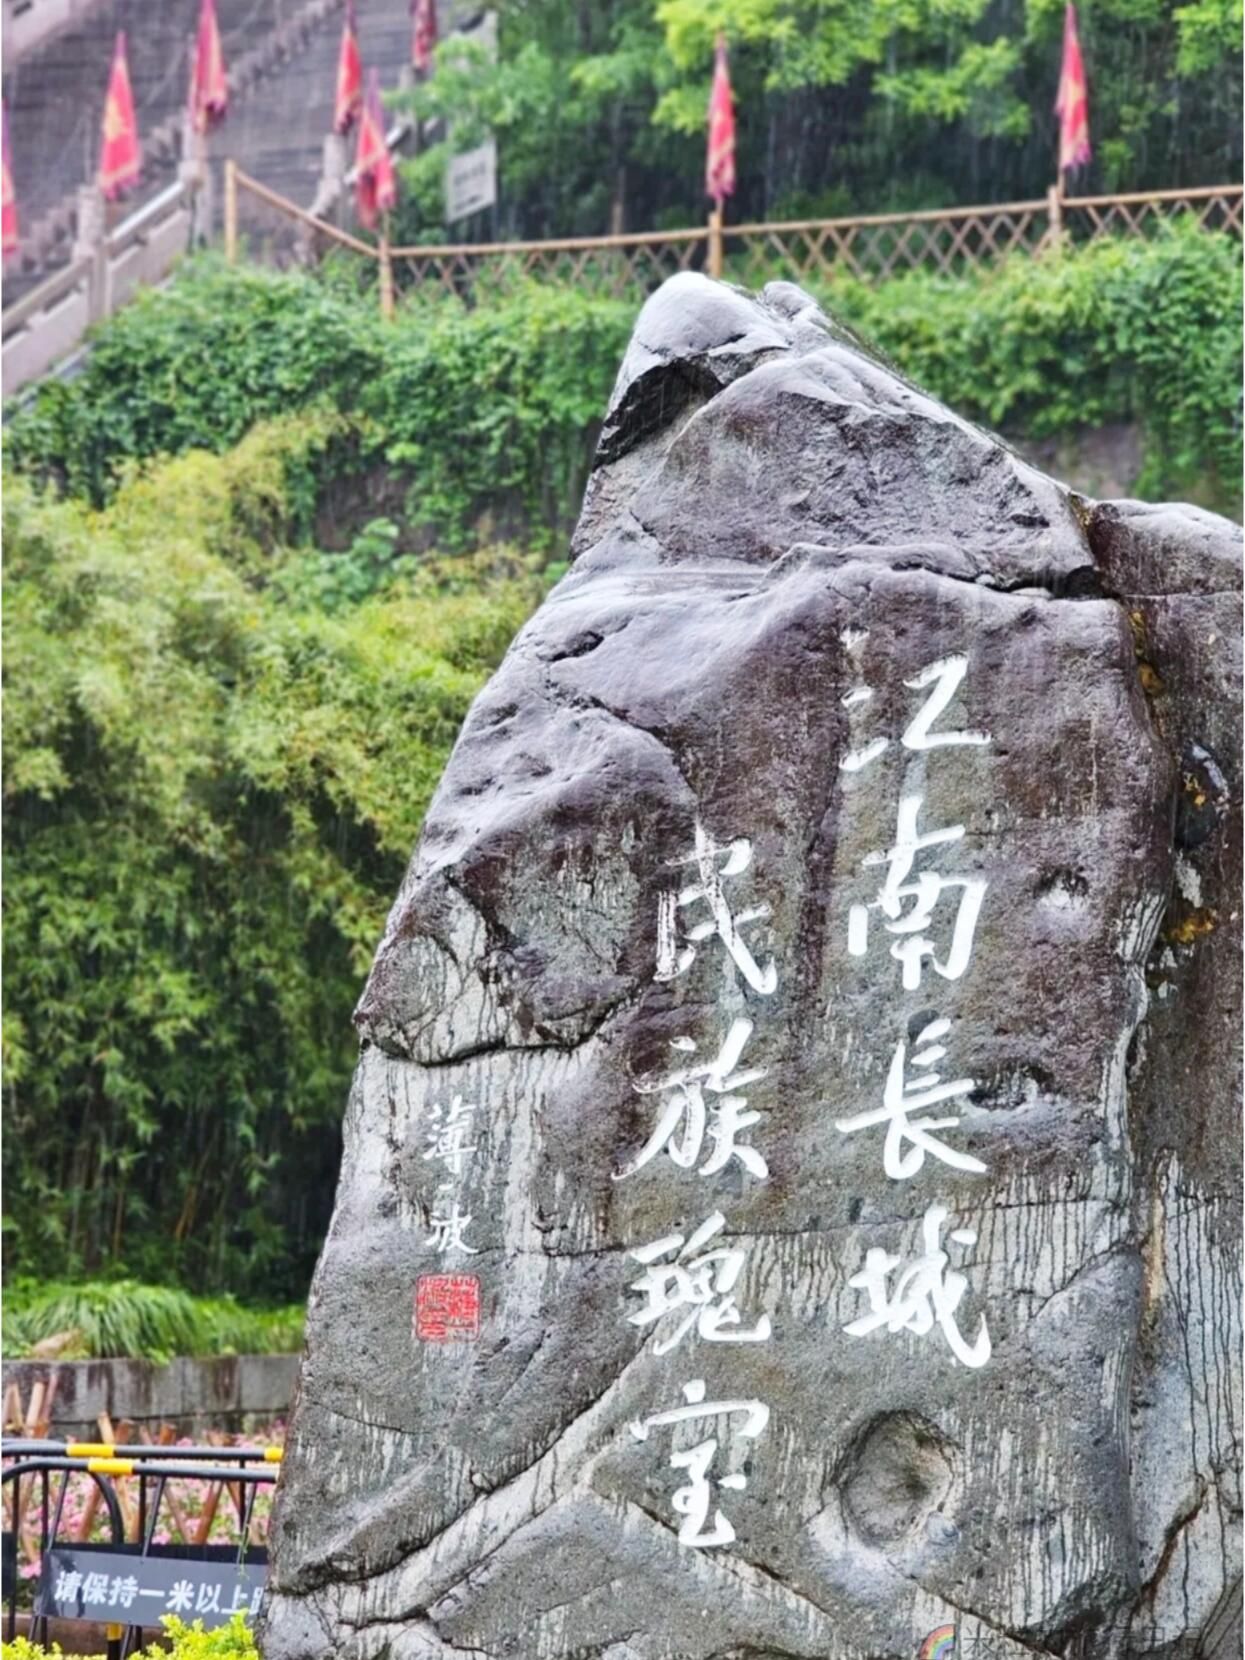 江南長城
民族瑰宝
薄一波
请保持一米以上